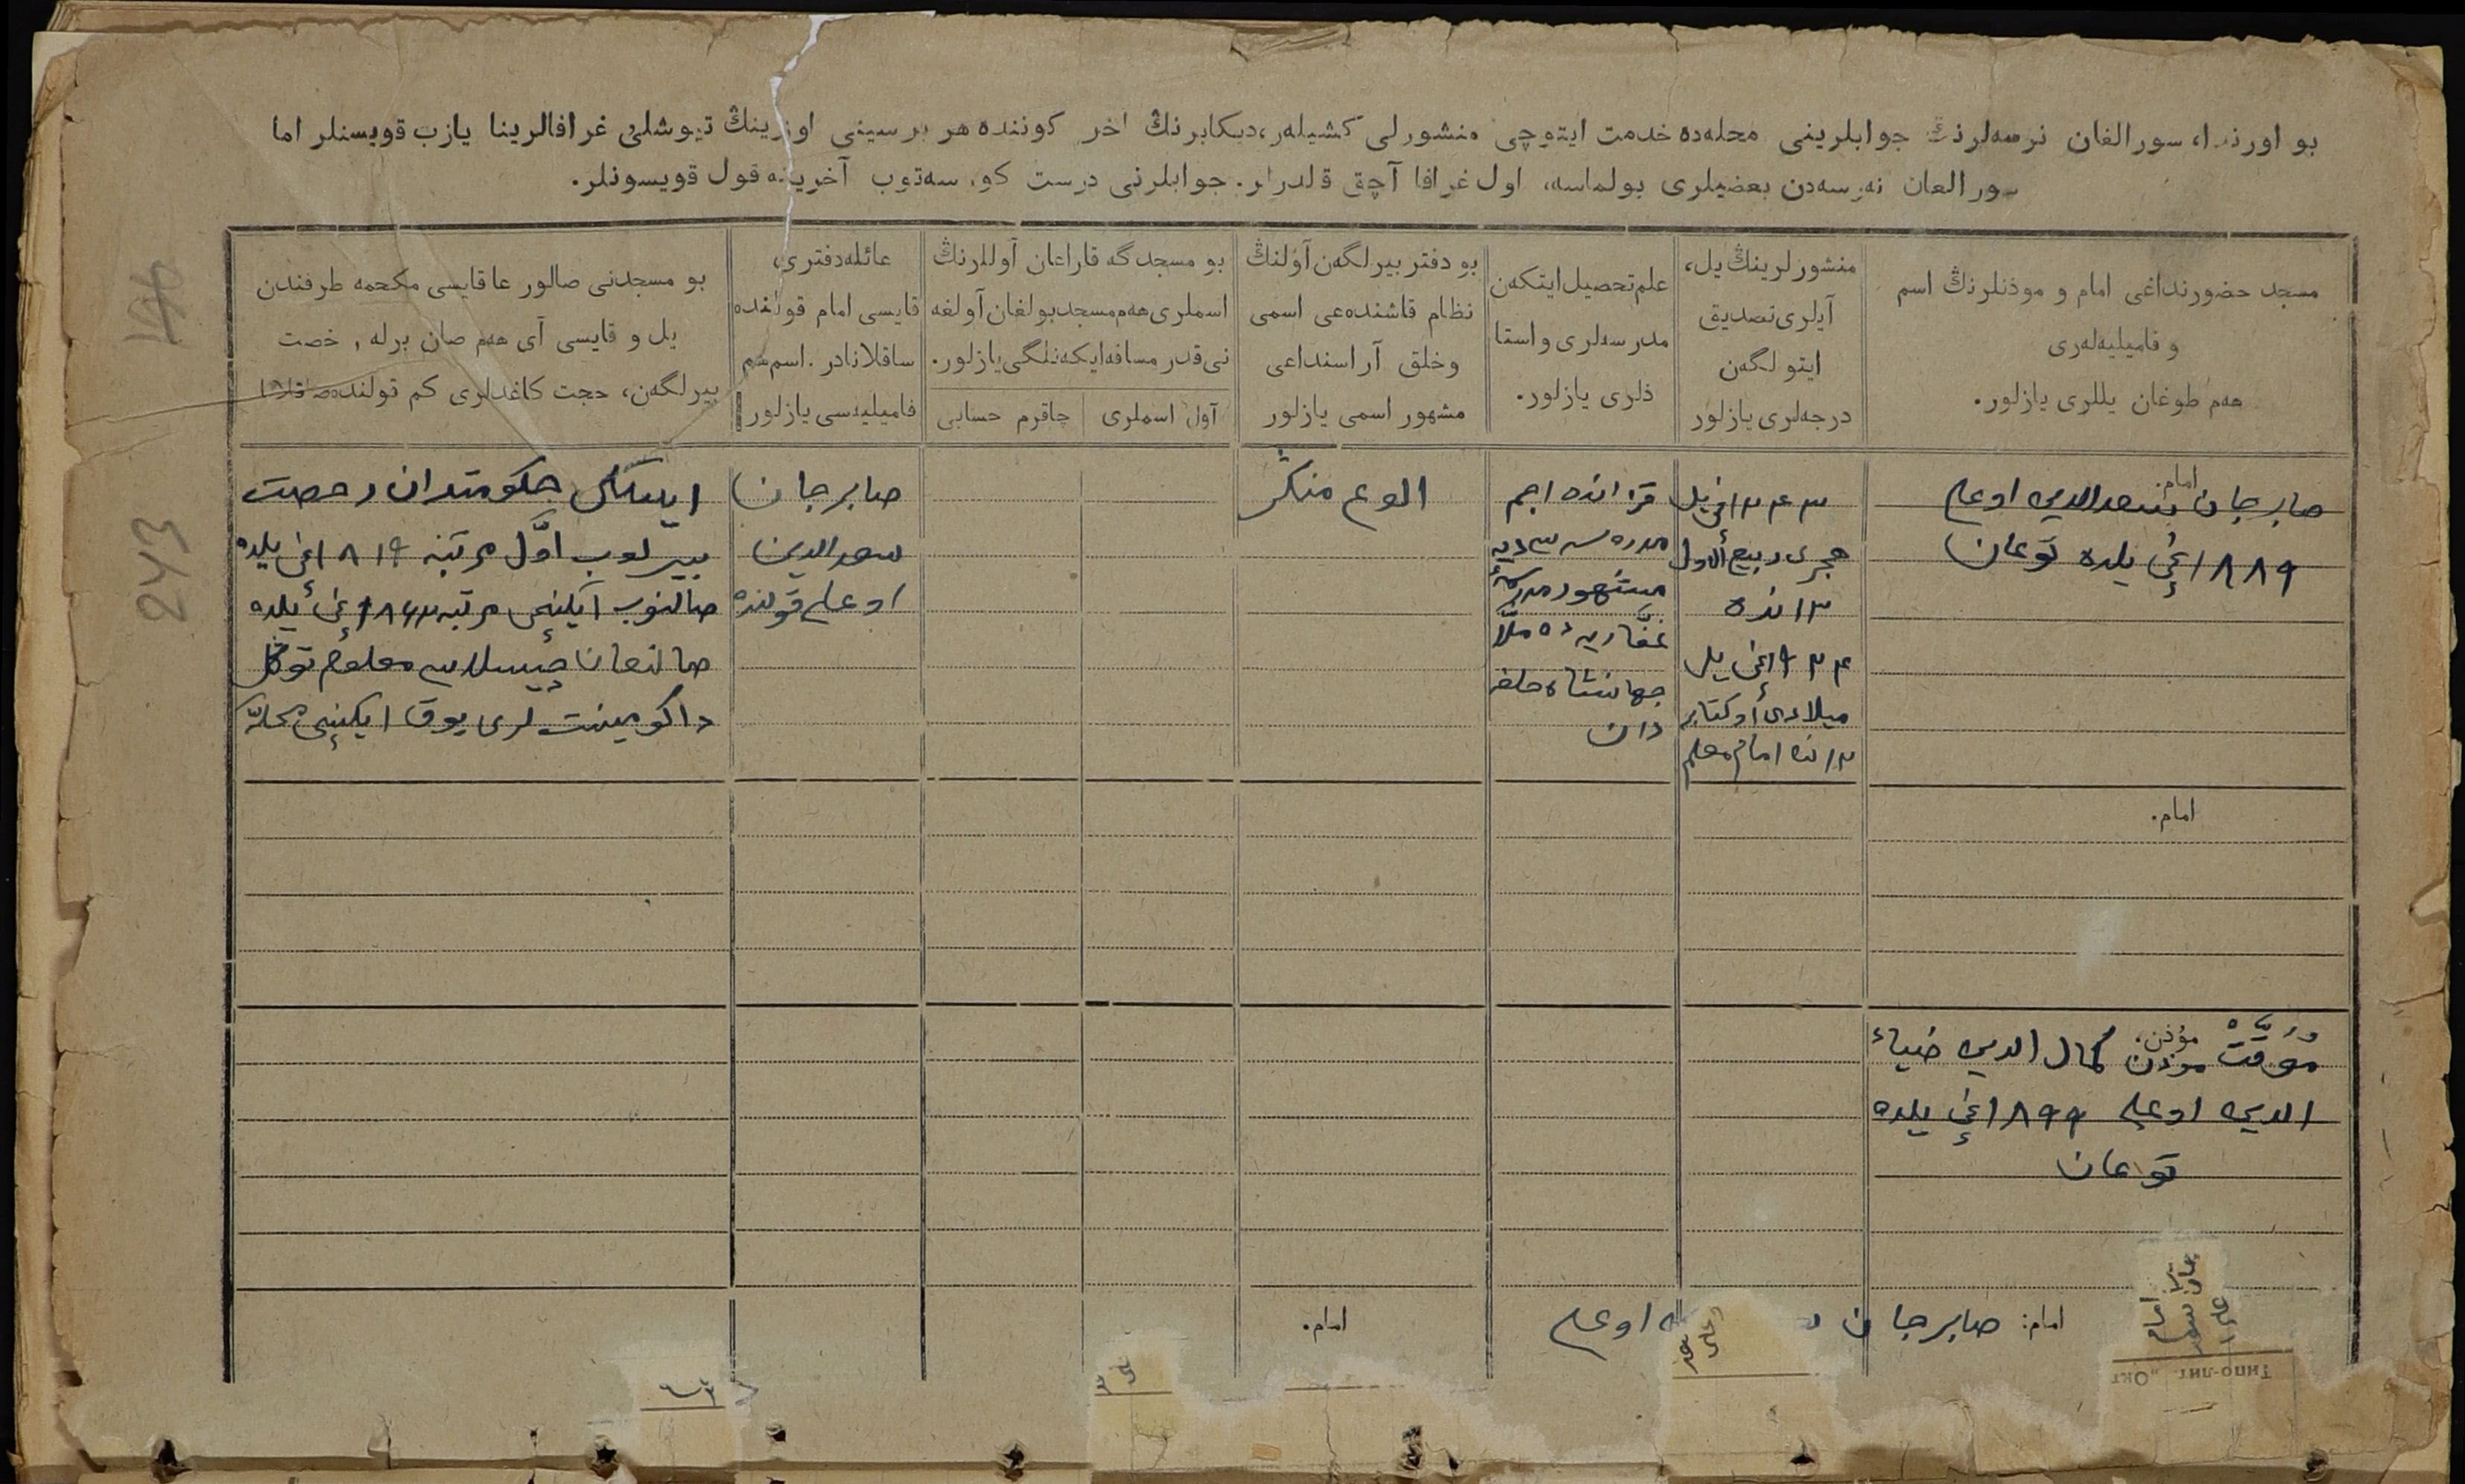 بو اورندا، سورالغان نرسه‌لرنڭ جوابلرینی محله‌ده خدمت ایتوچی منشورلی کشیله‌ر، دیکابرنڭ اخر کوننده هر برسینی اوزینڭ تیوشلی غرافالرینا یازب قویسنلر اما
سورالغان نه‌رسه‌دن بعضیلری بولماسه، اول غرافا آچق قلدرلر. جوابلرنی درست کو سه‌توب آخرینه قول قویسونلر.
مسجد حضورنداغی امام و موذنلرنڭ اسم
و فامیلیه‌له‌ری
هه‌م طوغان یللری یازلور.
منشورلرینڭ یل،
آیلری تصدیق
ایتولگه‌ن
درجه‌لری یازلور
علم تحصیل ایتکه‌ن
مدرسه‌لری و استا
ذلری یازلور.
بو دفتر بیرلگه‌ن آولنڭ
نظام قاشنده‌غی اسمی
و خلق آراسنداغی
مشهور اسمی یازلور
بو مسجدگه قاراغان آوللرنڭ
اسملری هه‌م مسجد بولغان آولغه
نی قدر مسافه ایکه‌نلگی یازلور.
آول اسملری
چاقرم حسابی
عائله دفتری
قایسی امام قولنده
ساقلانادر. اسم هم
فامیلیه‌سی یازلور
بو مسجدنی صالور غا قایسی محکمه طرفندن
یل و قایسی آی هه‌م صان برله رخصت
بیرلگه‌ن، حجت کاغدلری کم قولنده
امام.
صابرجان سعدالدین اوغلی
١٨٨٩ نچی یلده توغان
١٣٤٣ نچی یل
هجری ربیع الاول
١٣ نده
١٩٢٤ نچی یل
میلادی اوکتابر
١٣ نده امام معلم
مشهور مدرسه
غفاریه ده ملا
جهانشاه خلفه
دان
الوع
صابرجان
سعدالدین
اوغلی قولنده
ایسکی حکومتدان رخصت
بیرلوب اوّل مرتبه ١٨١٩ نچی یلده
صالنوب ایکنچی مرتبه ١٨٦٣ نچی یلده
صالنغان معلوم توگل
داکومینت لری یوق ایکنچی محله
امام.
مؤذن.
مُوَقَّتْ موذن کمال الدین ضیاء
الدین اوغلی ١٨٩٩ نچی یلده
توغان
امام: صابرجان اوغلی
امام.
Типо-лит. „Окт
243